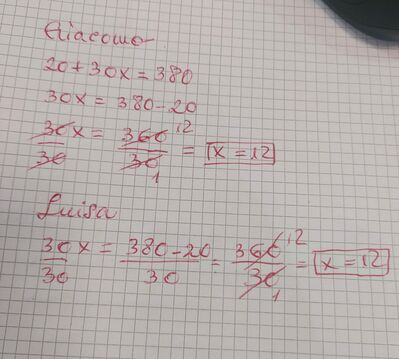 Giacomo
20+30x=380
30x=380-20
30x/30 = 360/30 12 1 = x=12
Luisa
30x/30 = 380-20/30 = 360/30 12 1 = x=12